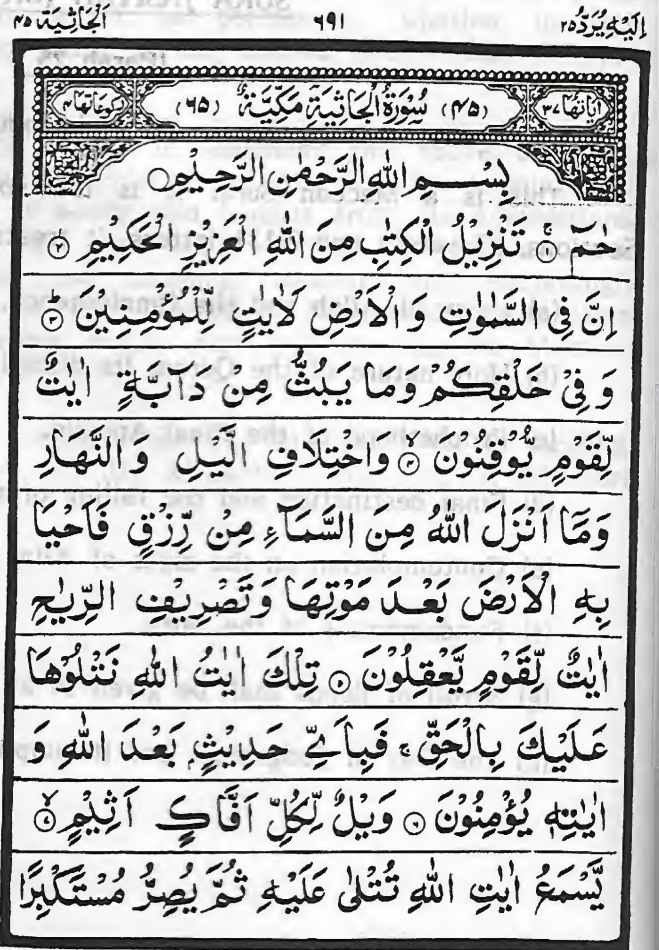 اِلَيْهِ يُرَدُّ ٢٥ ٦٩١ اَلْجَاثِيَة ٤٥
اٰيَاتُهَا ٣٧ (٤٥) سُوْرَةُ الْجَاثِيَةِ مَكِّيَّةٌ (٦٥) رُكُوْعَاتُهَا ٤
بِسْمِ اللهِ الرَّحْمٰنِ الرَّحِيْمِ
حٰمٓ ۝١ تَنْزِيْلُ الْكِتٰبِ مِنَ اللهِ الْعَزِيْزِ الْحَكِيْمِ ۝٢
اِنَّ فِى السَّمٰوٰتِ وَ الْاَرْضِ لَاٰيٰتٍ لِّلْمُؤْمِنِيْنَ ۝٣
وَ فِىْ خَلْقِكُمْ وَمَا يَبُثُّ مِنْ دَآبَّةٍ اٰيٰتٌ
لِّقَوْمٍ يُّوْقِنُوْنَ ۝٤ وَاخْتِلَافِ الَّيْلِ وَ النَّهَارِ
وَمَآ اَنْزَلَ اللهُ مِنَ السَّمَآءِ مِنْ رِّزْقٍ فَاَحْيَا
بِهِ الْاَرْضَ بَعْدَ مَوْتِهَا وَ تَصْرِيْفِ الرِّيٰحِ
اٰيٰتٌ لِّقَوْمٍ يَّعْقِلُوْنَ ۝٥ تِلْكَ اٰيٰتُ اللهِ نَتْلُوْهَا
عَلَيْكَ بِالْحَقِّ ۚ فَبِاَىِّ حَدِيْثٍۭ بَعْدَ اللهِ وَ
اٰيٰتِهٖ يُؤْمِنُوْنَ ۝٦ وَيْلٌ لِّكُلِّ اَفَّاكٍ اَثِيْمٍ ۝٧
يَّسْمَعُ اٰيٰتِ اللهِ تُتْلٰى عَلَيْهِ ثُمَّ يُصِرُّ مُسْتَكْبِرًا